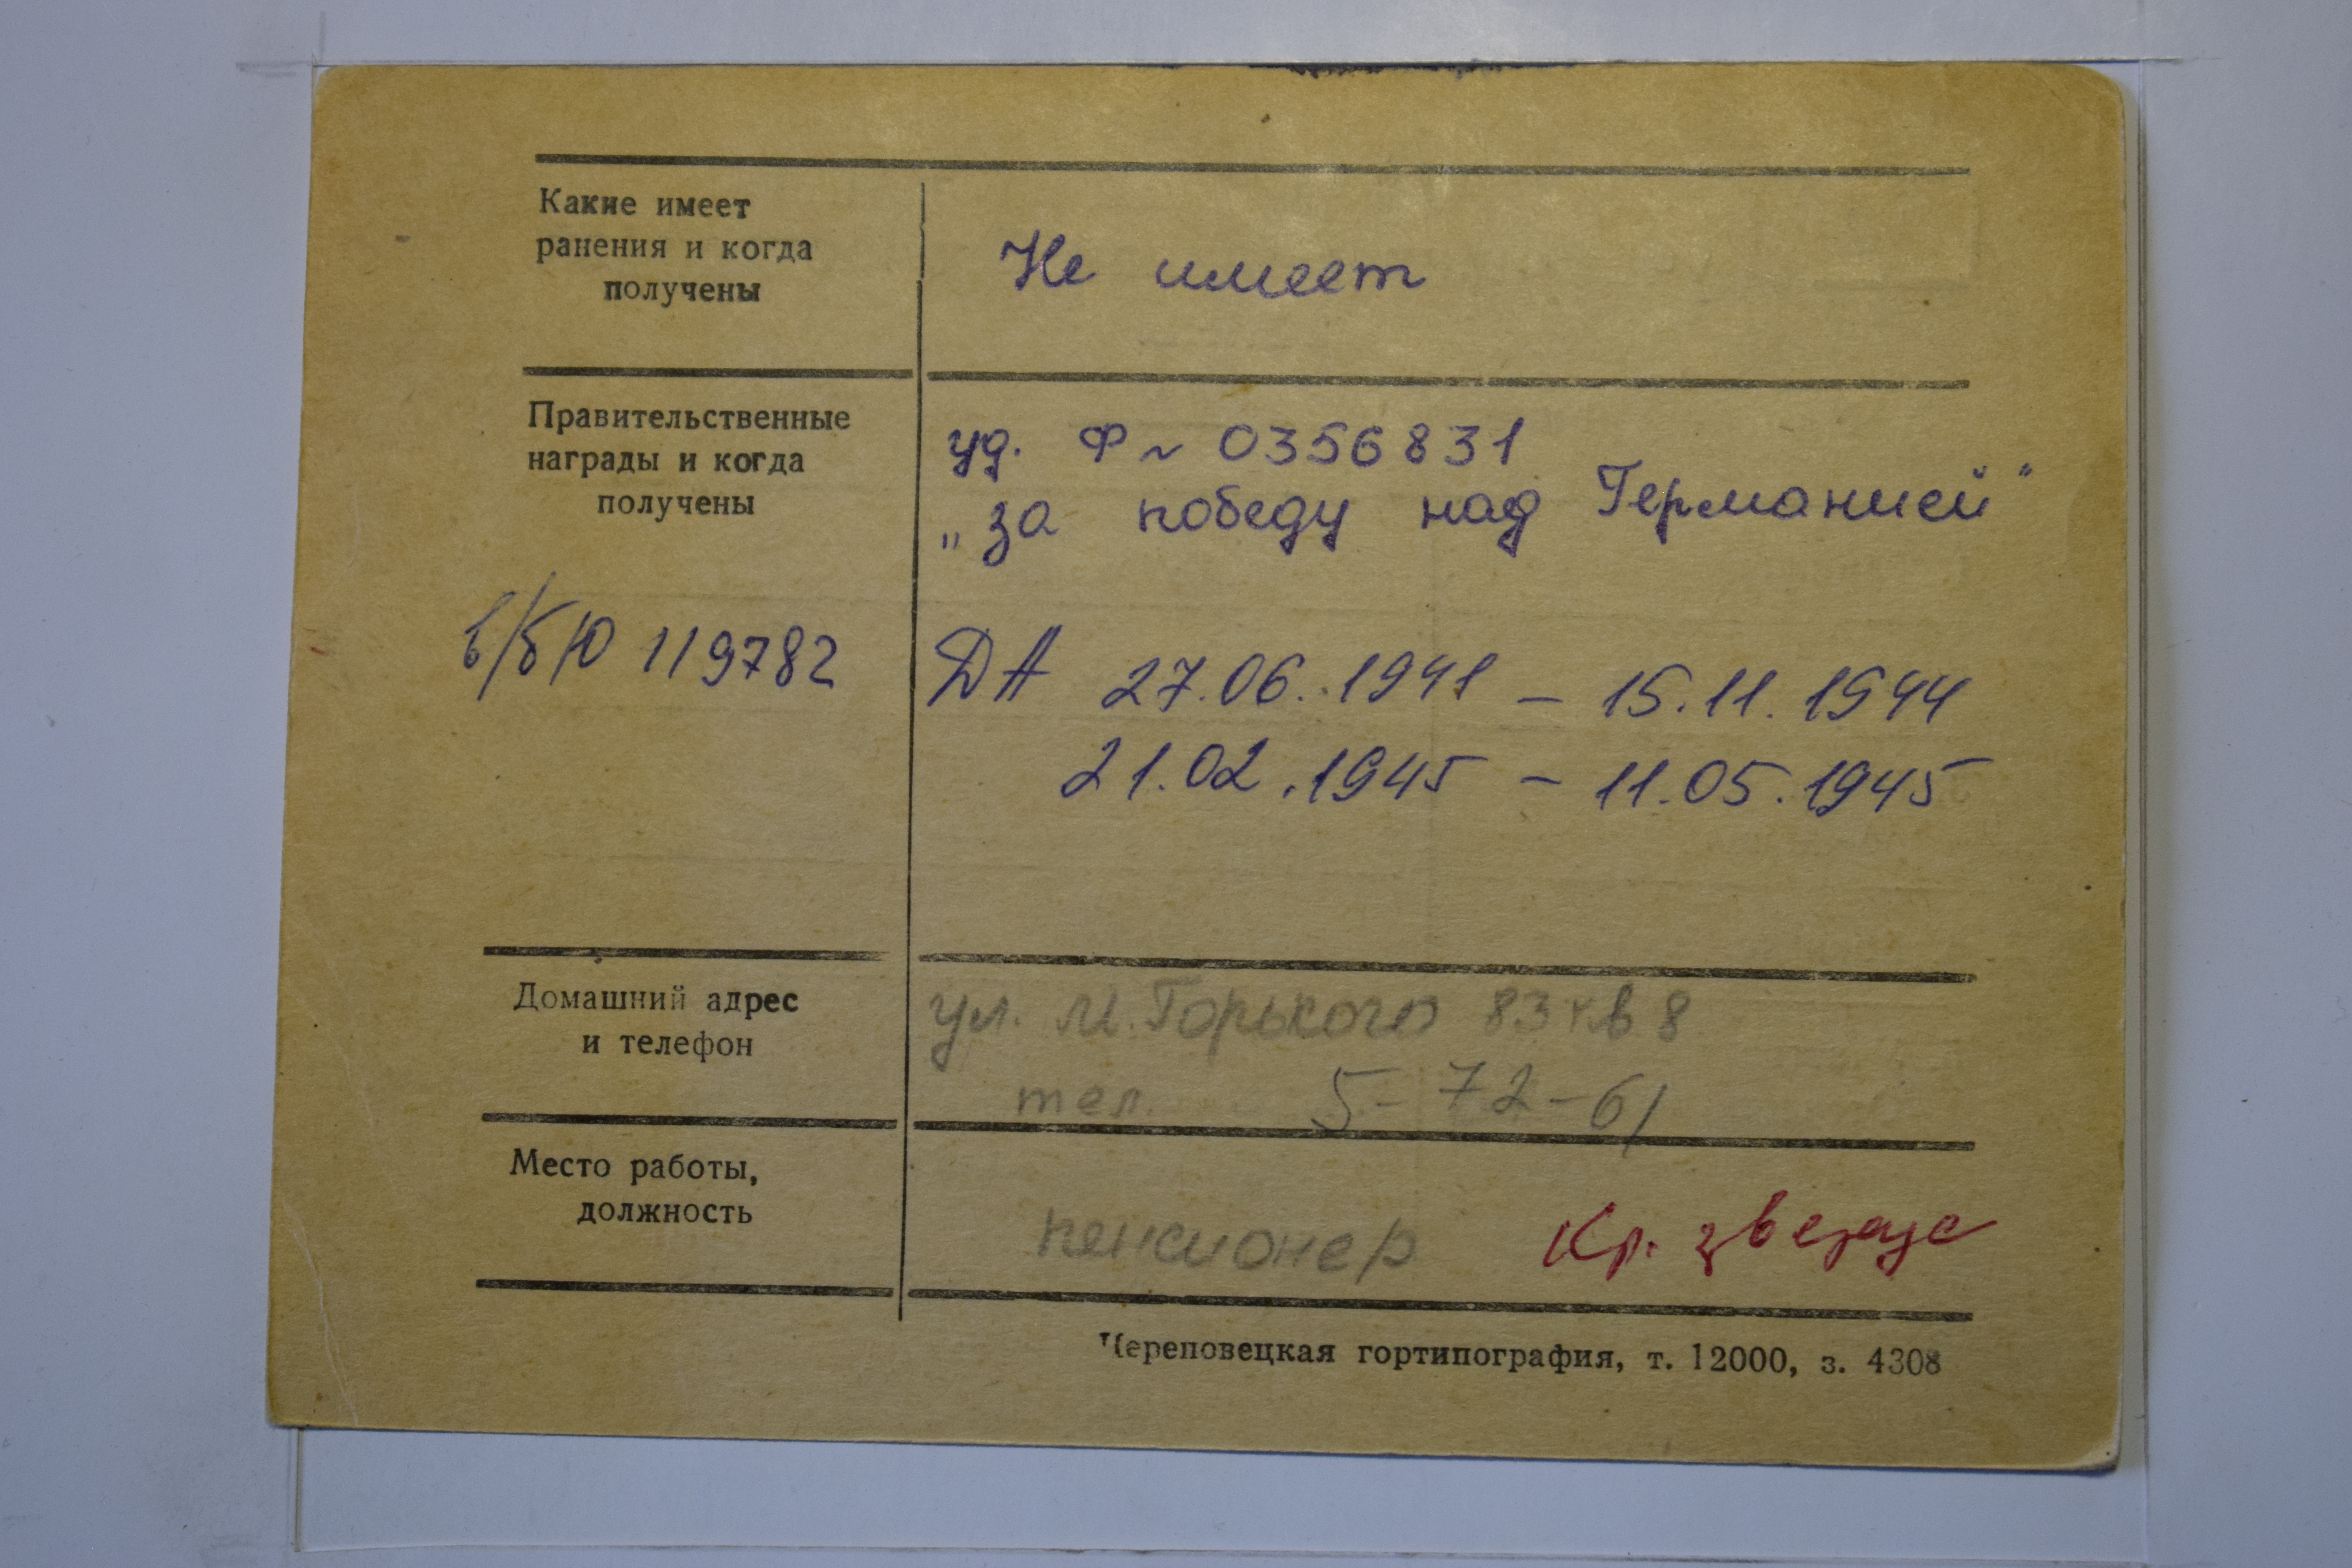 Какие имеет
ранения и когда
получены
Не имеет
Правительственные
награды и когда
получены
уд. Ф ~ 0356831
„за победу над Германией“
в/б Ю 119782
ДА 27.06.1941 – 15.11.1944
21.02.1945 – 11.05.1945
Домашний адрес
и телефон
ул. М.Горького 83 кв 8
тел. 5-72-61
Место работы,
должность
пенсионер
Кр. звезда
Череповецкая гортипография, т. 12000, з. 4308